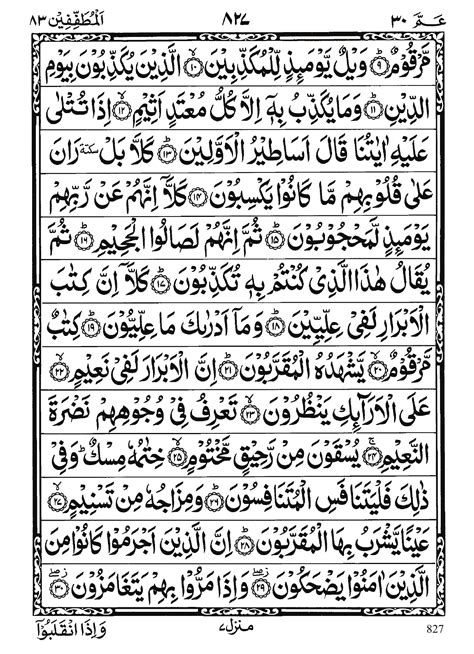 عَـمَّ ٣٠ ٨٢٧ اَلْمُطَفِّفِيْن ٨٣
مَّرْقُوْمٌ ۟ؕ‏۹ وَيْلٌ يَّوْمَىِٕذٍ لِّلْمُكَذِّبِيْنَ ۟ۙ‏۱۰ الَّذِيْنَ يُكَذِّبُوْنَ بِيَوْمِ
الدِّيْنِ ۟ؕ‏۱۱ وَمَا يُكَذِّبُ بِهٖۤ اِلَّا كُلُّ مُعْتَدٍ اَثِيْمٍ ۟ۙ‏۱۲ اِذَا تُتْلٰى
عَلَيْهِ اٰيٰتُنَا قَالَ اَسَاطِيْرُ الْاَوَّلِيْنَ ۟ؕ‏۱۳ كَلَّا بَلْ سكتة رَانَ
عَلٰى قُلُوْبِهِمْ مَّا كَانُوْا يَكْسِبُوْنَ ۟‏۱۴ كَلَّاۤ اِنَّهُمْ عَنْ رَّبِّهِمْ
يَوْمَىِٕذٍ لَّمَحْجُوْبُوْنَ ۟ؕ‏۱۵ ثُمَّ اِنَّهُمْ لَصَالُوا الْجَحِيْمِ ۟ؕ‏۱۶ ثُمَّ
يُقَالُ هٰذَا الَّذِيْ كُنْتُمْ بِهٖ تُكَذِّبُوْنَ ۟ؕ‏۱۷ كَلَّاۤ اِنَّ كِتٰبَ
الْاَبْرَارِ لَفِيْ عِلِّيِّيْنَ ۟ؕ‏۱۸ وَمَاۤ اَدْرٰىكَ مَا عِلِّيُّوْنَ ۟ؕ‏۱۹ كِتٰبٌ
مَّرْقُوْمٌ ۟ۙ‏۲۰ يَّشْهَدُهُ الْمُقَرَّبُوْنَ ۟ؕ‏۲۱ اِنَّ الْاَبْرَارَ لَفِيْ نَعِيْمٍ ۟ۙ‏۲۲
عَلَى الْاَرَآىِٕكِ يَنْظُرُوْنَ ۟ۙ‏۲۳ تَعْرِفُ فِيْ وُجُوْهِهِمْ نَضْرَةَ
النَّعِيْمِ ۟ۚ‏۲۴ يُسْقَوْنَ مِنْ رَّحِيْقٍ مَّخْتُوْمٍ ۟ۙ‏۲۵ خِتٰمُهٗ مِسْكٌ ؕ وَفِيْ
ذٰلِكَ فَلْيَتَنَافَسِ الْمُتَنَافِسُوْنَ ۟ؕ‏۲۶ وَمِزَاجُهٗ مِنْ تَسْنِيْمٍ ۟ۙ‏۲۷
عَيْنًا يَّشْرَبُ بِهَا الْمُقَرَّبُوْنَ ۟ؕ‏۲۸ اِنَّ الَّذِيْنَ اَجْرَمُوْا كَانُوْا مِنَ
الَّذِيْنَ اٰمَنُوْا يَضْحَكُوْنَ ۟ؗۖ‏۲۹ وَاِذَا مَرُّوْا بِهِمْ يَتَغَامَزُوْنَ ۟ؗۖ‏۳۰
وَاِذَا انْقَلَبُوْۤا منزل٧ 827